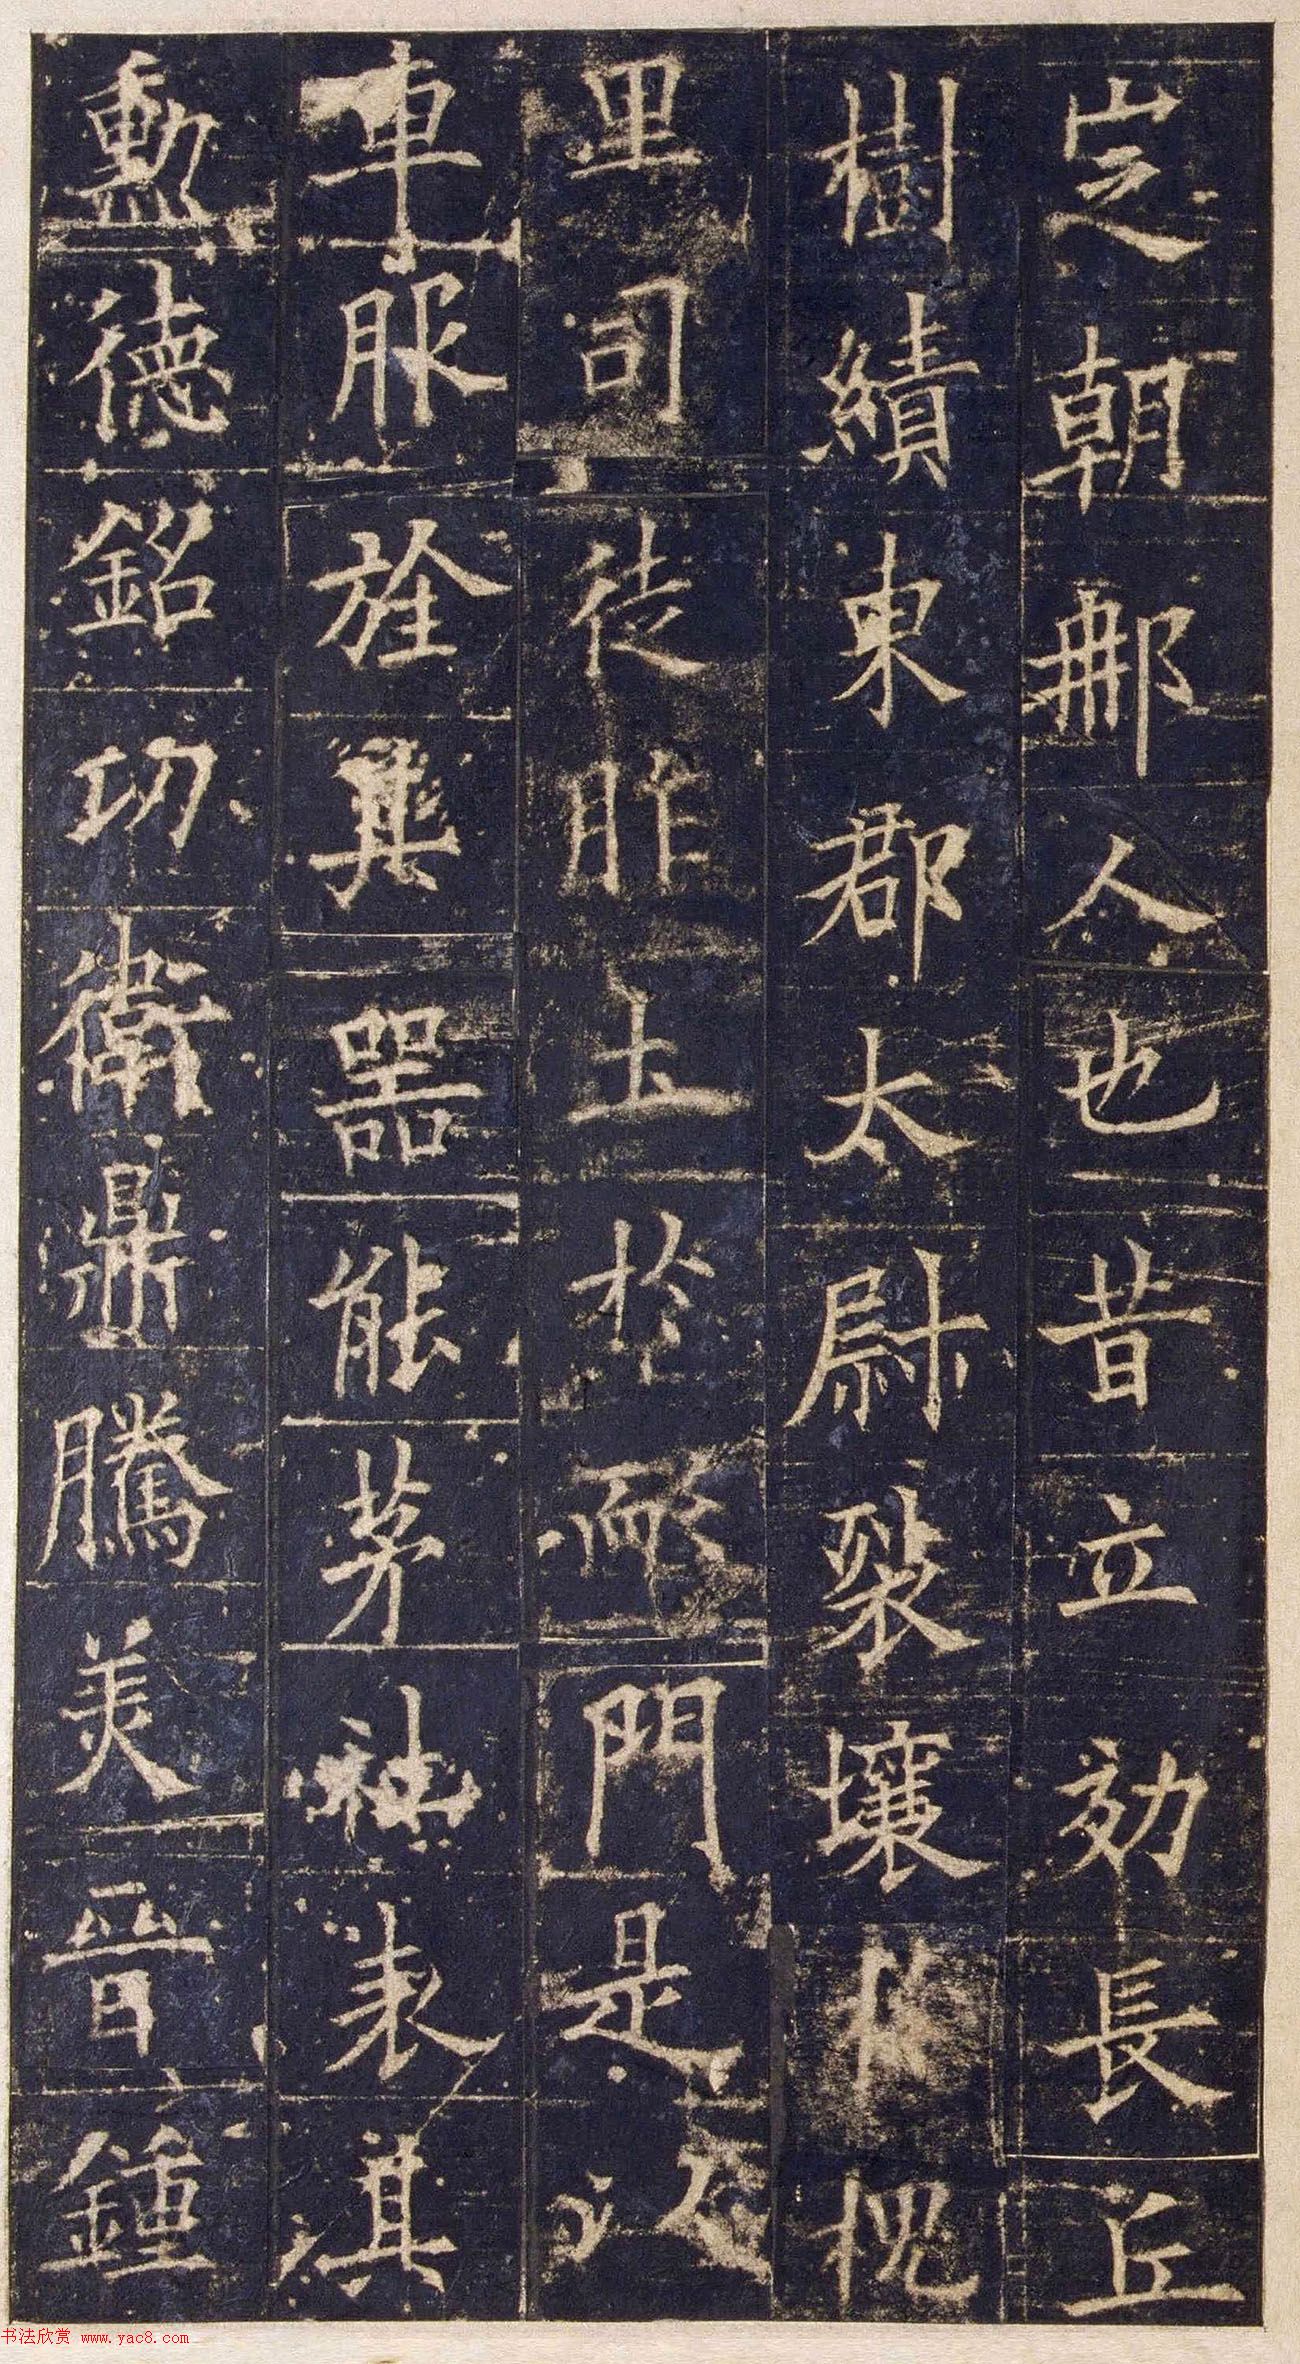 㝎朝那人也昔立効長丘
樹績東郡太尉裂壤
槐里司徒胙土於耏門是
車服旌其器能茅社表其
勳德銘功衛鼎騰美晉鍾
书法欣赏 www.yac8.com